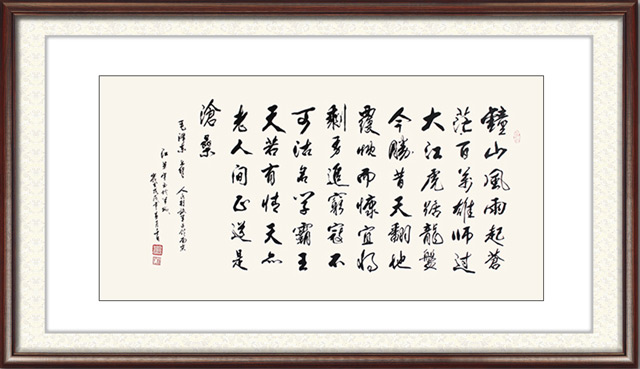 鐘山風雨起蒼
茫百萬雄師過
大江虎踞龍盤
今勝昔天翻地
覆慨而慷宜將
剩勇追窮寇不
可沽名學霸王
天若有情天亦
老人间正道是
滄桑
毛澤東 七律 人民解放軍占領南京